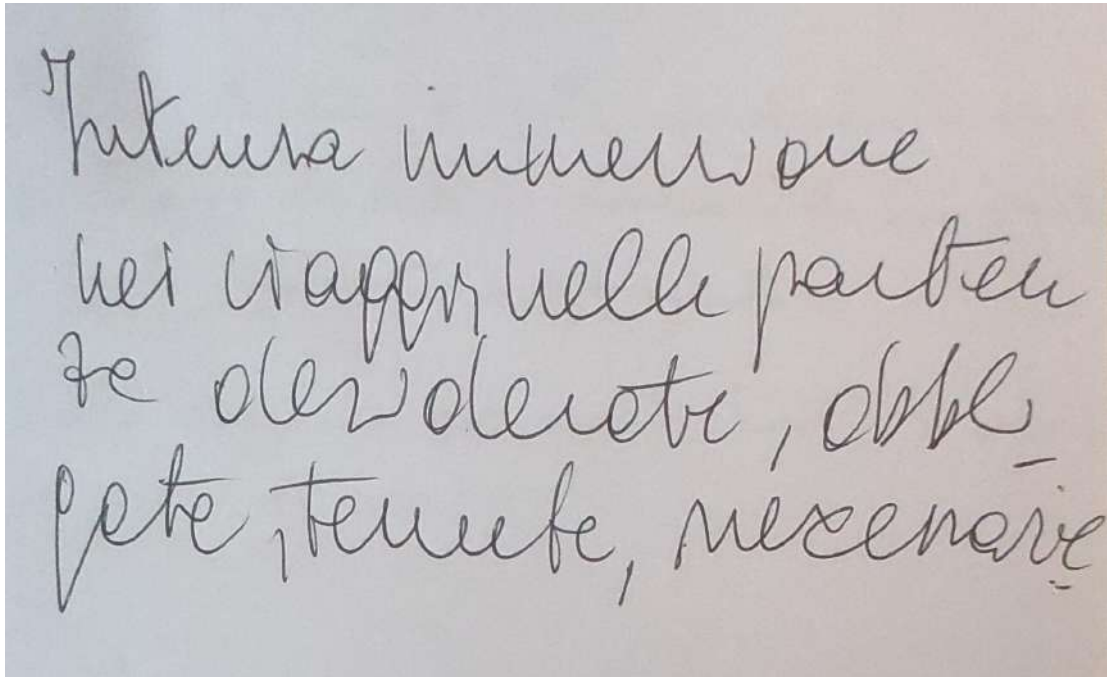 Intensa immersione
nei viaggi, nelle parten
ze desiderate, obbli_
gate, temute, necessarie